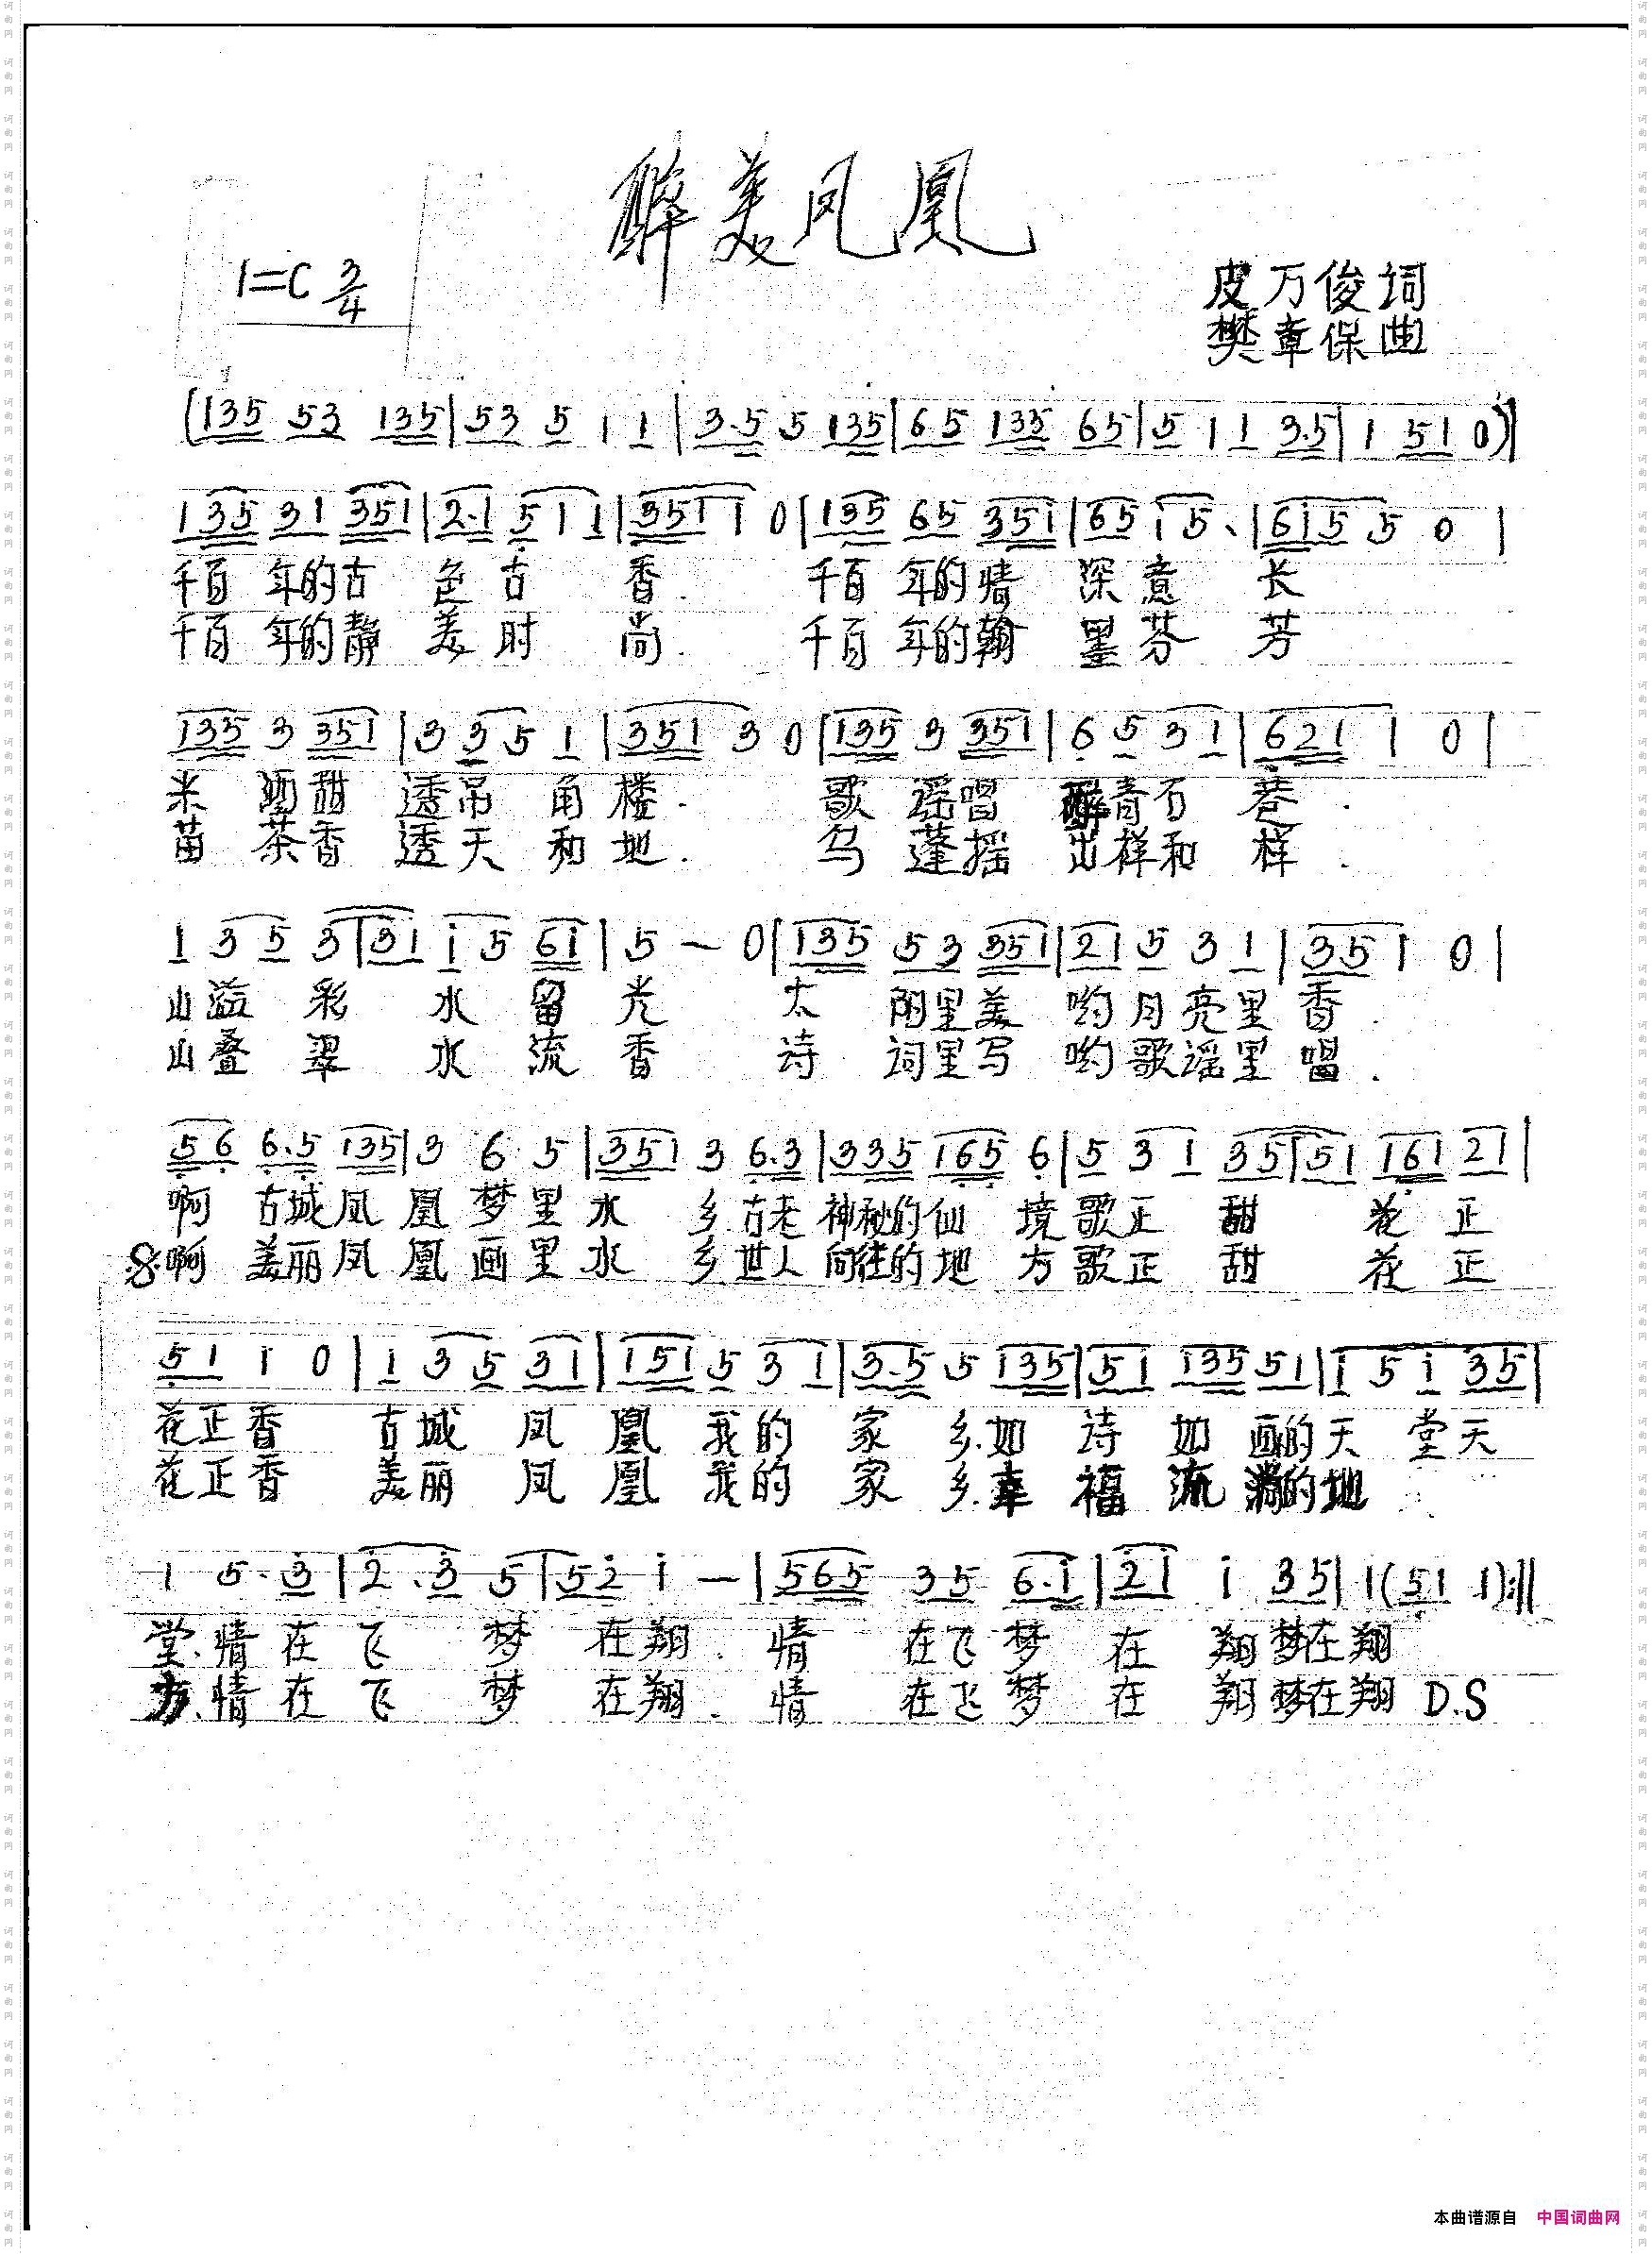 醉美凤凰
1=C 3/4
皮万俊词
樊章保曲
(135 53 135|53 5 1 1|3.5 5 135|65 135 65|5 1 1 3.5|1 51 0)|
135 31 351|2.1 5 1 1|351 1 0|135 65 351|65 i 5.|6i5 5 0|
千百 年的古 色古 香. 千百 年的情 深意 长
千百 年的静 美时 尚. 千百 年的翰 墨芬 芳
135 3 351|3 3 5 1|351 3 0|135 3 351|6 5 3 1|621 1 0|
米 酒甜 透吊 角楼. 歌 谣唱 醉青石 巷.
苗 茶香 透天 和地. 乌 蓬摇 出样和 样.
1 3 5 3|31 i 5 6i|5 — 0|135 53 351|21 5 3 1|35 1 0|
山溢 彩 水 留 光 太 阳里美 哟月亮里香.
山叠 翠 水 流 香 诗 词里写 哟歌谣里唱.
56 6.5 135|3 6 5|351 3 6.3|335 165 6|5 3 1 35|51 161 21|
啊 古城凤 凰梦里水 乡古老 神秘的仙 境歌正 甜 花 正
𝄋啊 美丽凤 凰画里水 乡世人 向往的地 方歌正 甜 花 正
51 i 0|1 3 5 31|151 5 3 1|3.5 5 135|51 135 51|1 5 i 35|
花正香 古城 凤 凰 我的 家 乡.如 诗 如 画的天 堂天
花正香 美丽 凤 凰 我的 家 乡.幸 福 流 淌的地
1 5.3|2.3 5|52 i —|565 35 6.i|2i i 35|1(51 1):||
堂.情在 飞 梦 在翔. 情 在飞梦 在 翔梦在翔
方.情在 飞 梦 在翔. 情 在飞梦 在 翔梦在翔 D.S
本曲谱源自 中国词曲网